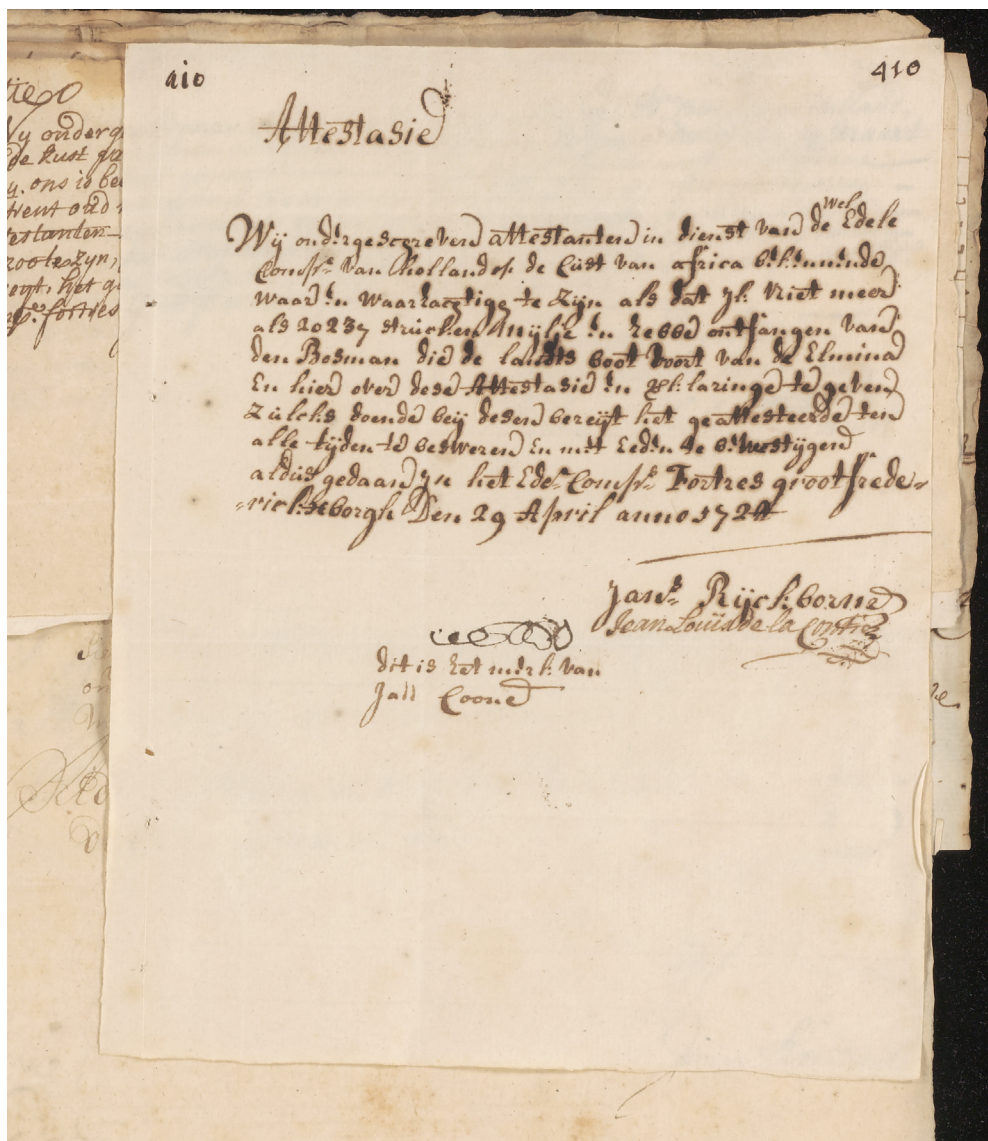 410
410
Attestasie
Wij ondergescreven attestanten in dienst van de WelEdele
Comps.e van holland op de Cust van africa bekennende
waar en waarhagtige te zijn als dat yk niet meer
als 20237 stucken hebbe ontfangen van
den Bosman die de landts boot voort van de Elmina
En hier over dese Attestasie en te geven
Zulcks doende beij desen bereijt het geattesteerde ten
alle tijden te besweren En met Eeden te bevestijgen
aldus gedaan yn het Edele Comps.e Fortres grootfrede-
-ricksborgh Den 29 April anno 1724
Jans Rijckborne
Jean Louis de la
dit is het merk van
Jall Coone
tie
Wy onderg
de kust
ons is be
trent oud
testanten
groote zyn,
het g
fortres